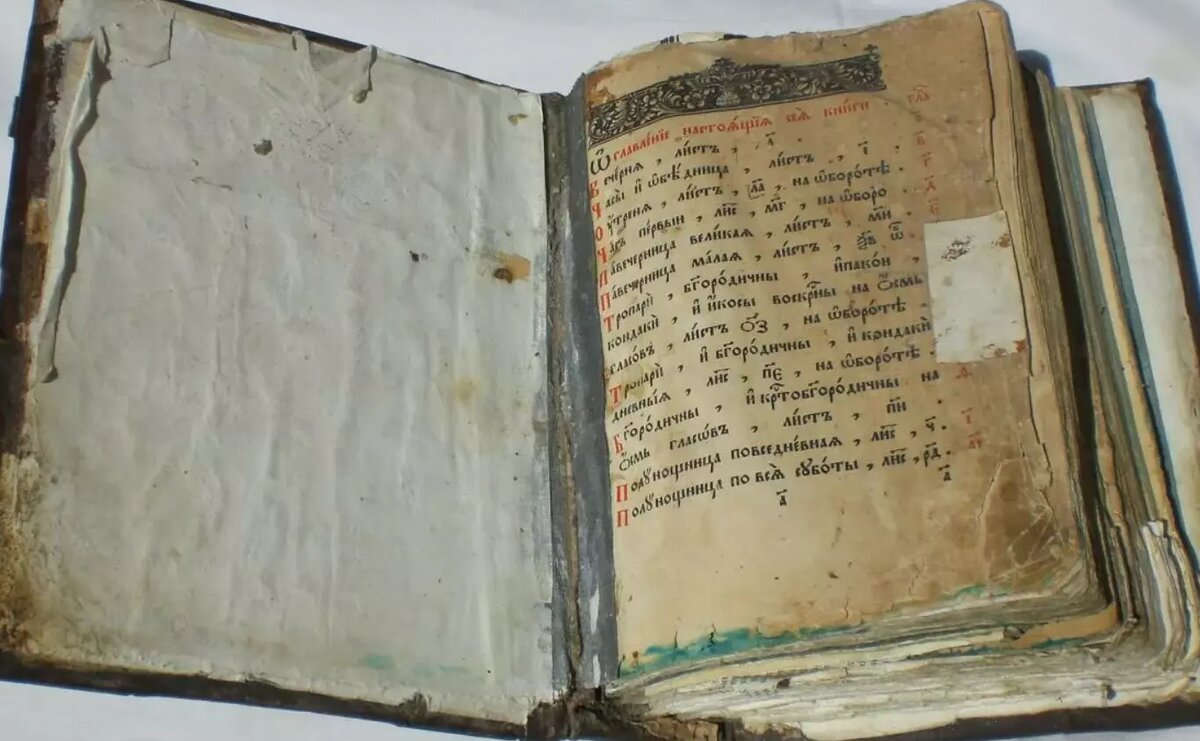 Ѡглавле́нїе настоѧ́щїѧ сеѧ̀ кни́ги
Вече́рня, ли́стъ, а҃.
Часы̀ и҆ ѡ҆бѣ́дница, листъ, і҃.
Оу҆́треня, ли́стъ, л҃а, на ѡ҆боро́тѣ.
Ча́съ пе́рвый, ли́с, м҃г, на ѡ҆боро́
Павечерница вели́каѧ, ли́стъ, м҃и.
Павечерница ма́лаѧ, ли́стъ,
Тропарѝ, бг҃оро́дичны, и҆пакоѝ,
кондакѝ, и҆ и҆́косы воскрⷭ҇ны на ѻ҆́смь
гласѡ́въ, ли́стъ ѻ҃з, на ѡ҆боро́тѣ
Тропарѝ, и҆ бг҃оро́дичны, и҆ кондакѝ
дне́вныѧ, ли́с, п҃є, на ѡ҆боро́тѣ.
Бг҃оро́дичны, и҆ крⷭ҇тобг҃оро́дичны на
ѻ҆́смь гласѡ́въ, ли́стъ, п҃и.
Полꙋнощница повседне́внаѧ, ли́с, ч҃.
Полꙋнощница по всѧ̀ сꙋбо́ты, ли́с, р҃д.
а҃
а҃